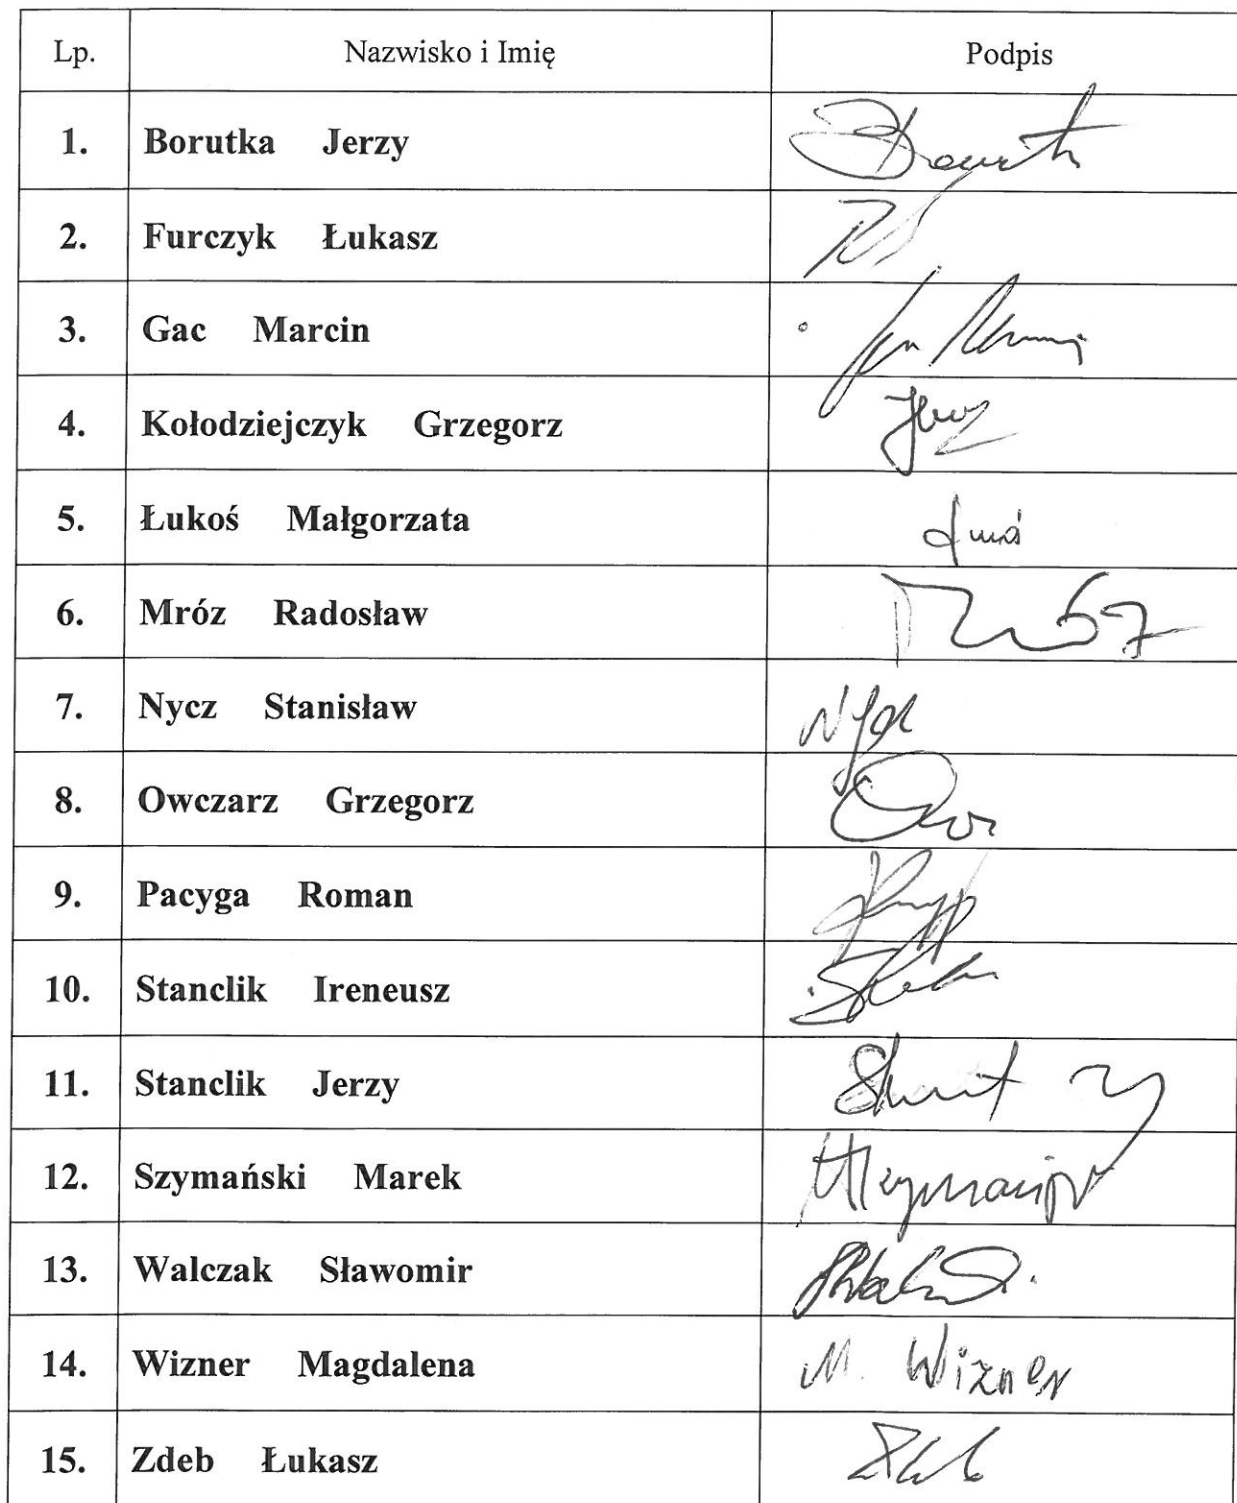 Lp. Nazwisko i Imię Podpis
1. Borutka Jerzy
2. Furczyk Łukasz
3. Gac Marcin
4. Kołodziejczyk Grzegorz
5. Łukoś Małgorzata
6. Mróz Radosław Mróz
7. Nycz Stanisław
8. Owczarz Grzegorz
9. Pacyga Roman
10. Stanclik Ireneusz
11. Stanclik Jerzy
12. Szymański Marek
13. Walczak Sławomir
14. Wizner Magdalena M. Wizner
15. Zdeb Łukasz